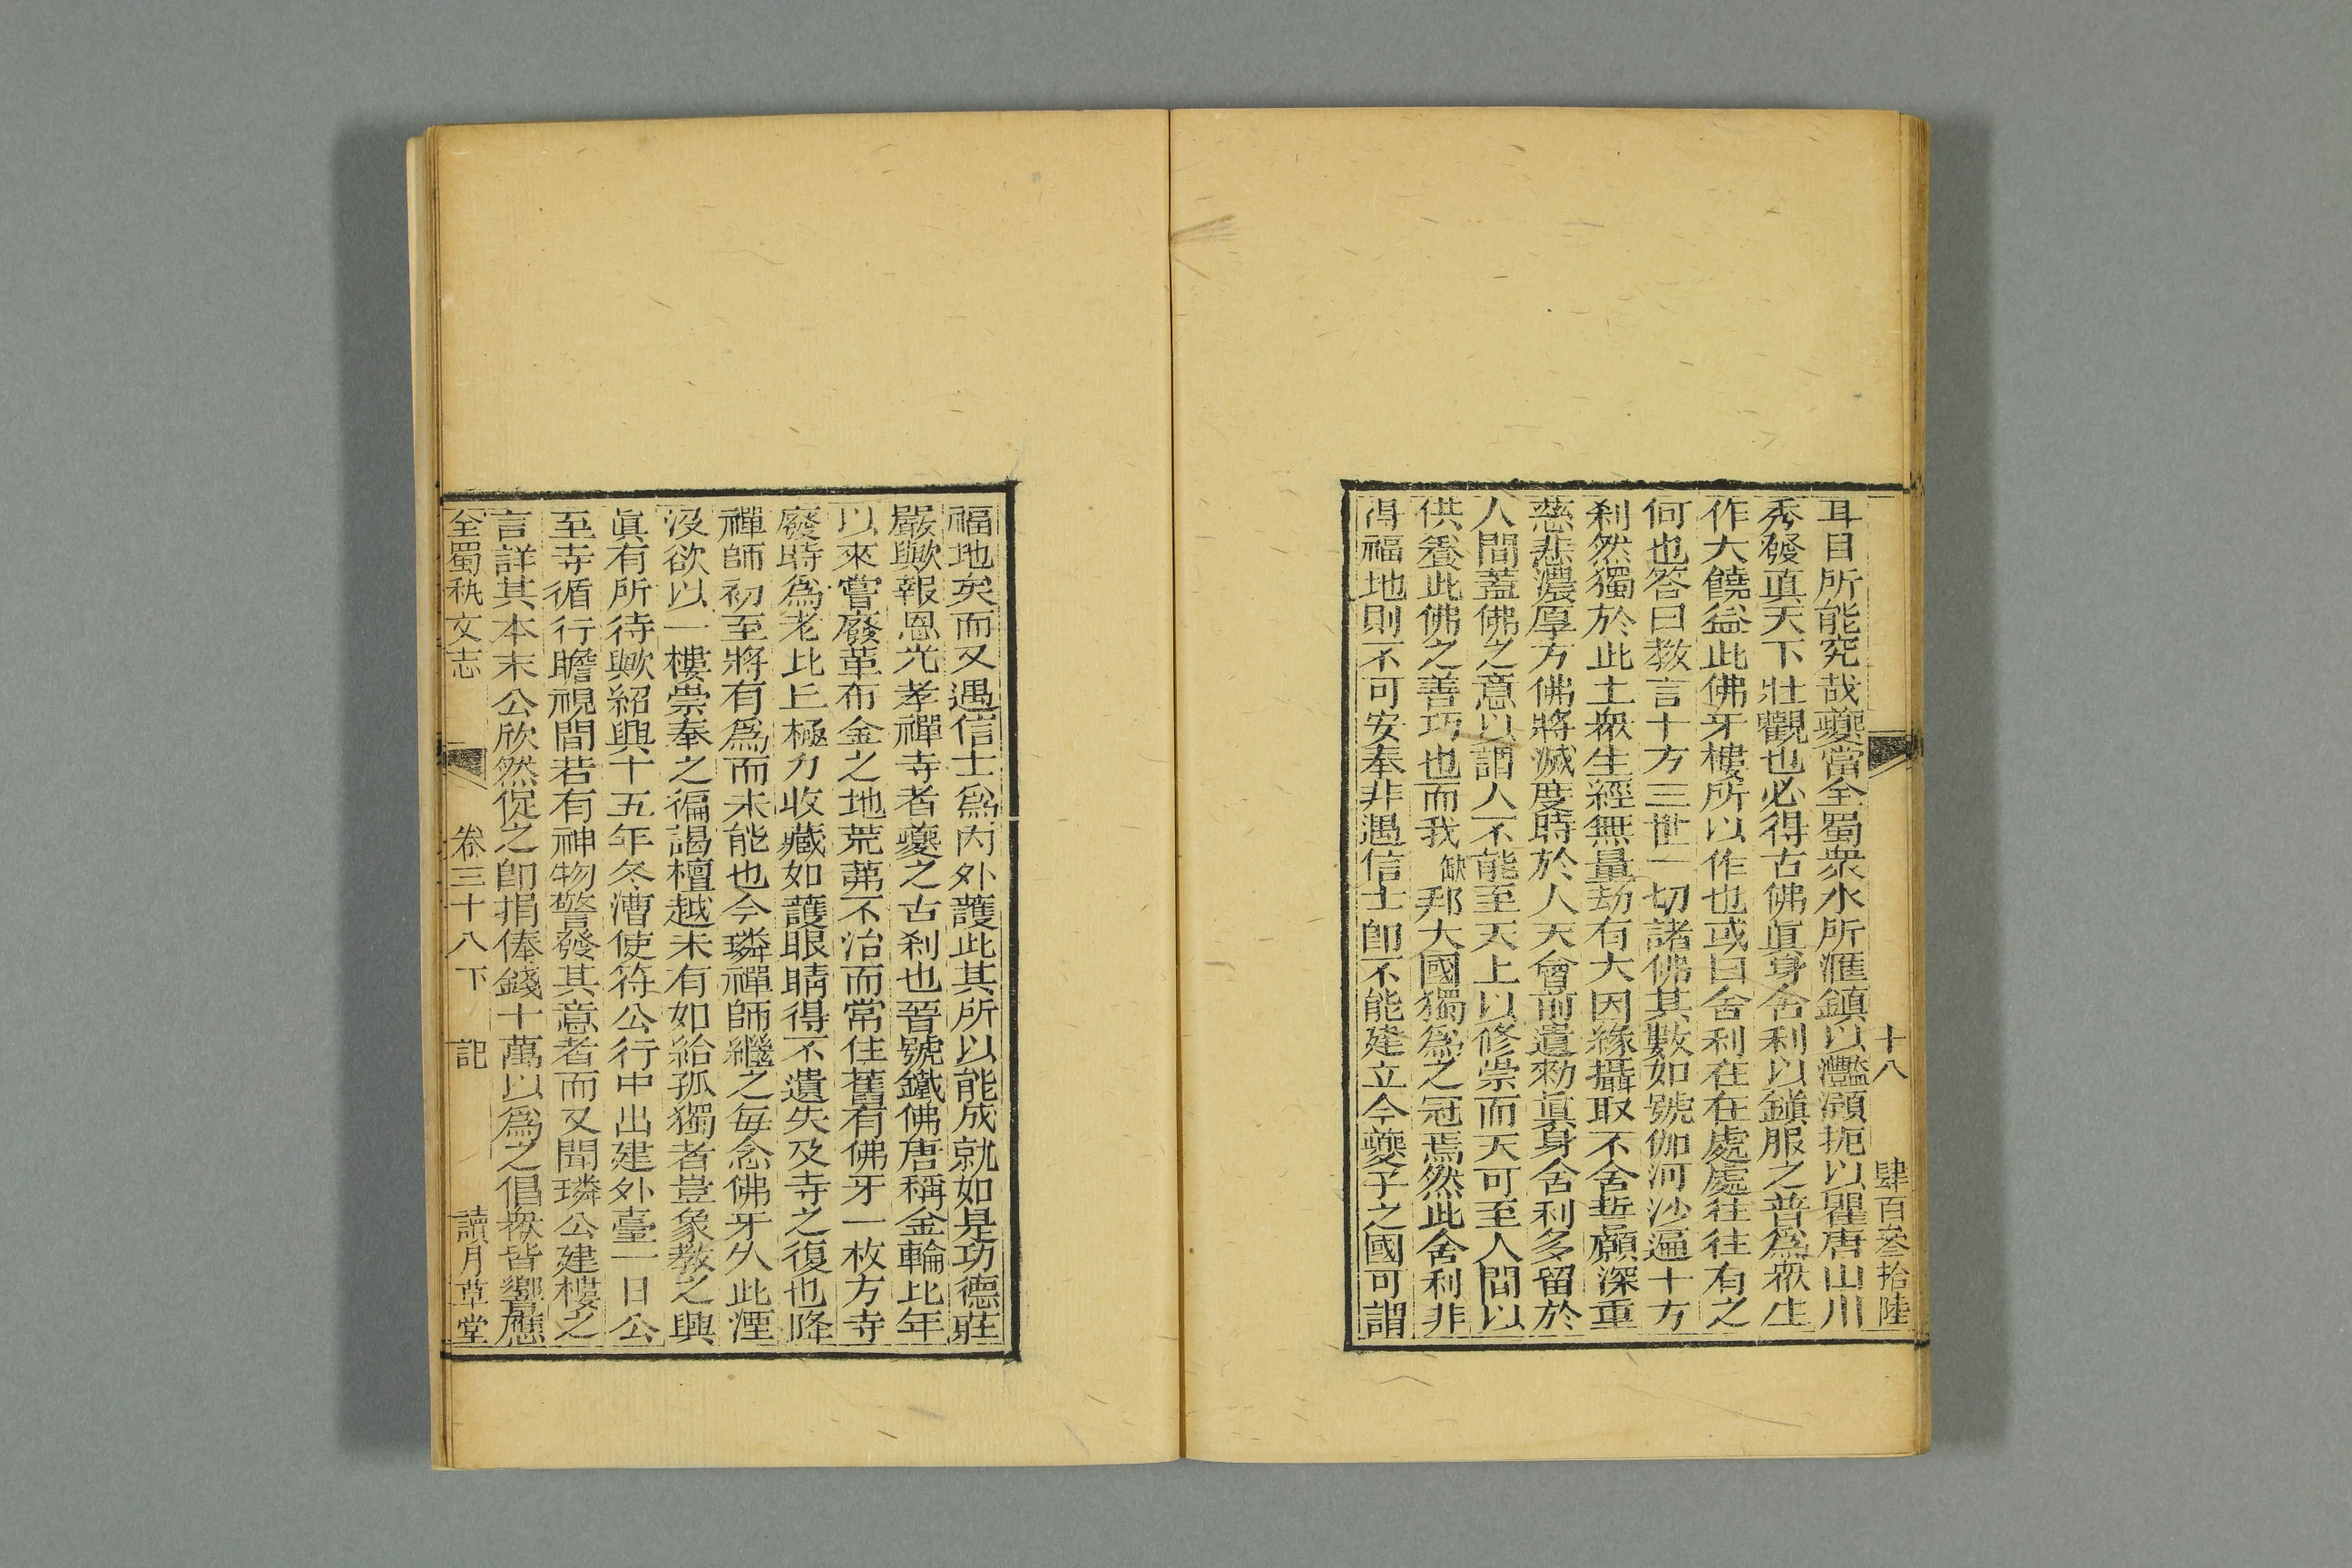 十八　肆百叁拾陸
耳目所能究哉夔當全蜀衆水所滙鎮以灩澦扼以瞿唐山川
秀發真天下壯觀也必得古佛眞身舍利以鎭服之普爲衆生
作大饒益此佛牙樓所以作也或曰舍利在在處處往往有之
何也答曰教言十方三世一切諸佛其數如號伽河沙遍十方
刹然獨於此土衆生經無量劫有大因緣攝取不舍誓願深重
慈悲濃厚方佛將滅度時於人天會前遺勑眞身舍利多留於
人間蓋佛之意以謂人不能至天上以修崇而天可至人間以
供養此佛之善巧也而我缺邦大國獨爲之冠焉然此舍利非
得福地則不可安奉非遇信士卽不能建立今夔子之國可謂
福地矣而又遇信士爲内外護此其所以能成就如是功德莊
嚴歟報恩光孝禪寺者夔之古刹也晉號鐵佛唐稱金輪比年
以來嘗廢革布金之地荒茀不治而常住舊有佛牙一枚方寺
廢時爲老比丘極力收藏如護眼睛得不遺失及寺之復也降
禪師初至將有爲而未能也今璘禪師繼之每念佛牙久此湮
沒欲以一樓崇奉之徧謁檀越未有如給孤獨者豈象教之興
眞有所待歟紹興十五年冬漕使符公行中出建外臺一日公
至寺循行瞻視間若有神物警發其意者而又聞璘公建樓之
言詳其本末公欣然促之卽捐俸錢十萬以爲之倡衆皆響應
全蜀秇文志　卷三十八下　記　讀月草堂